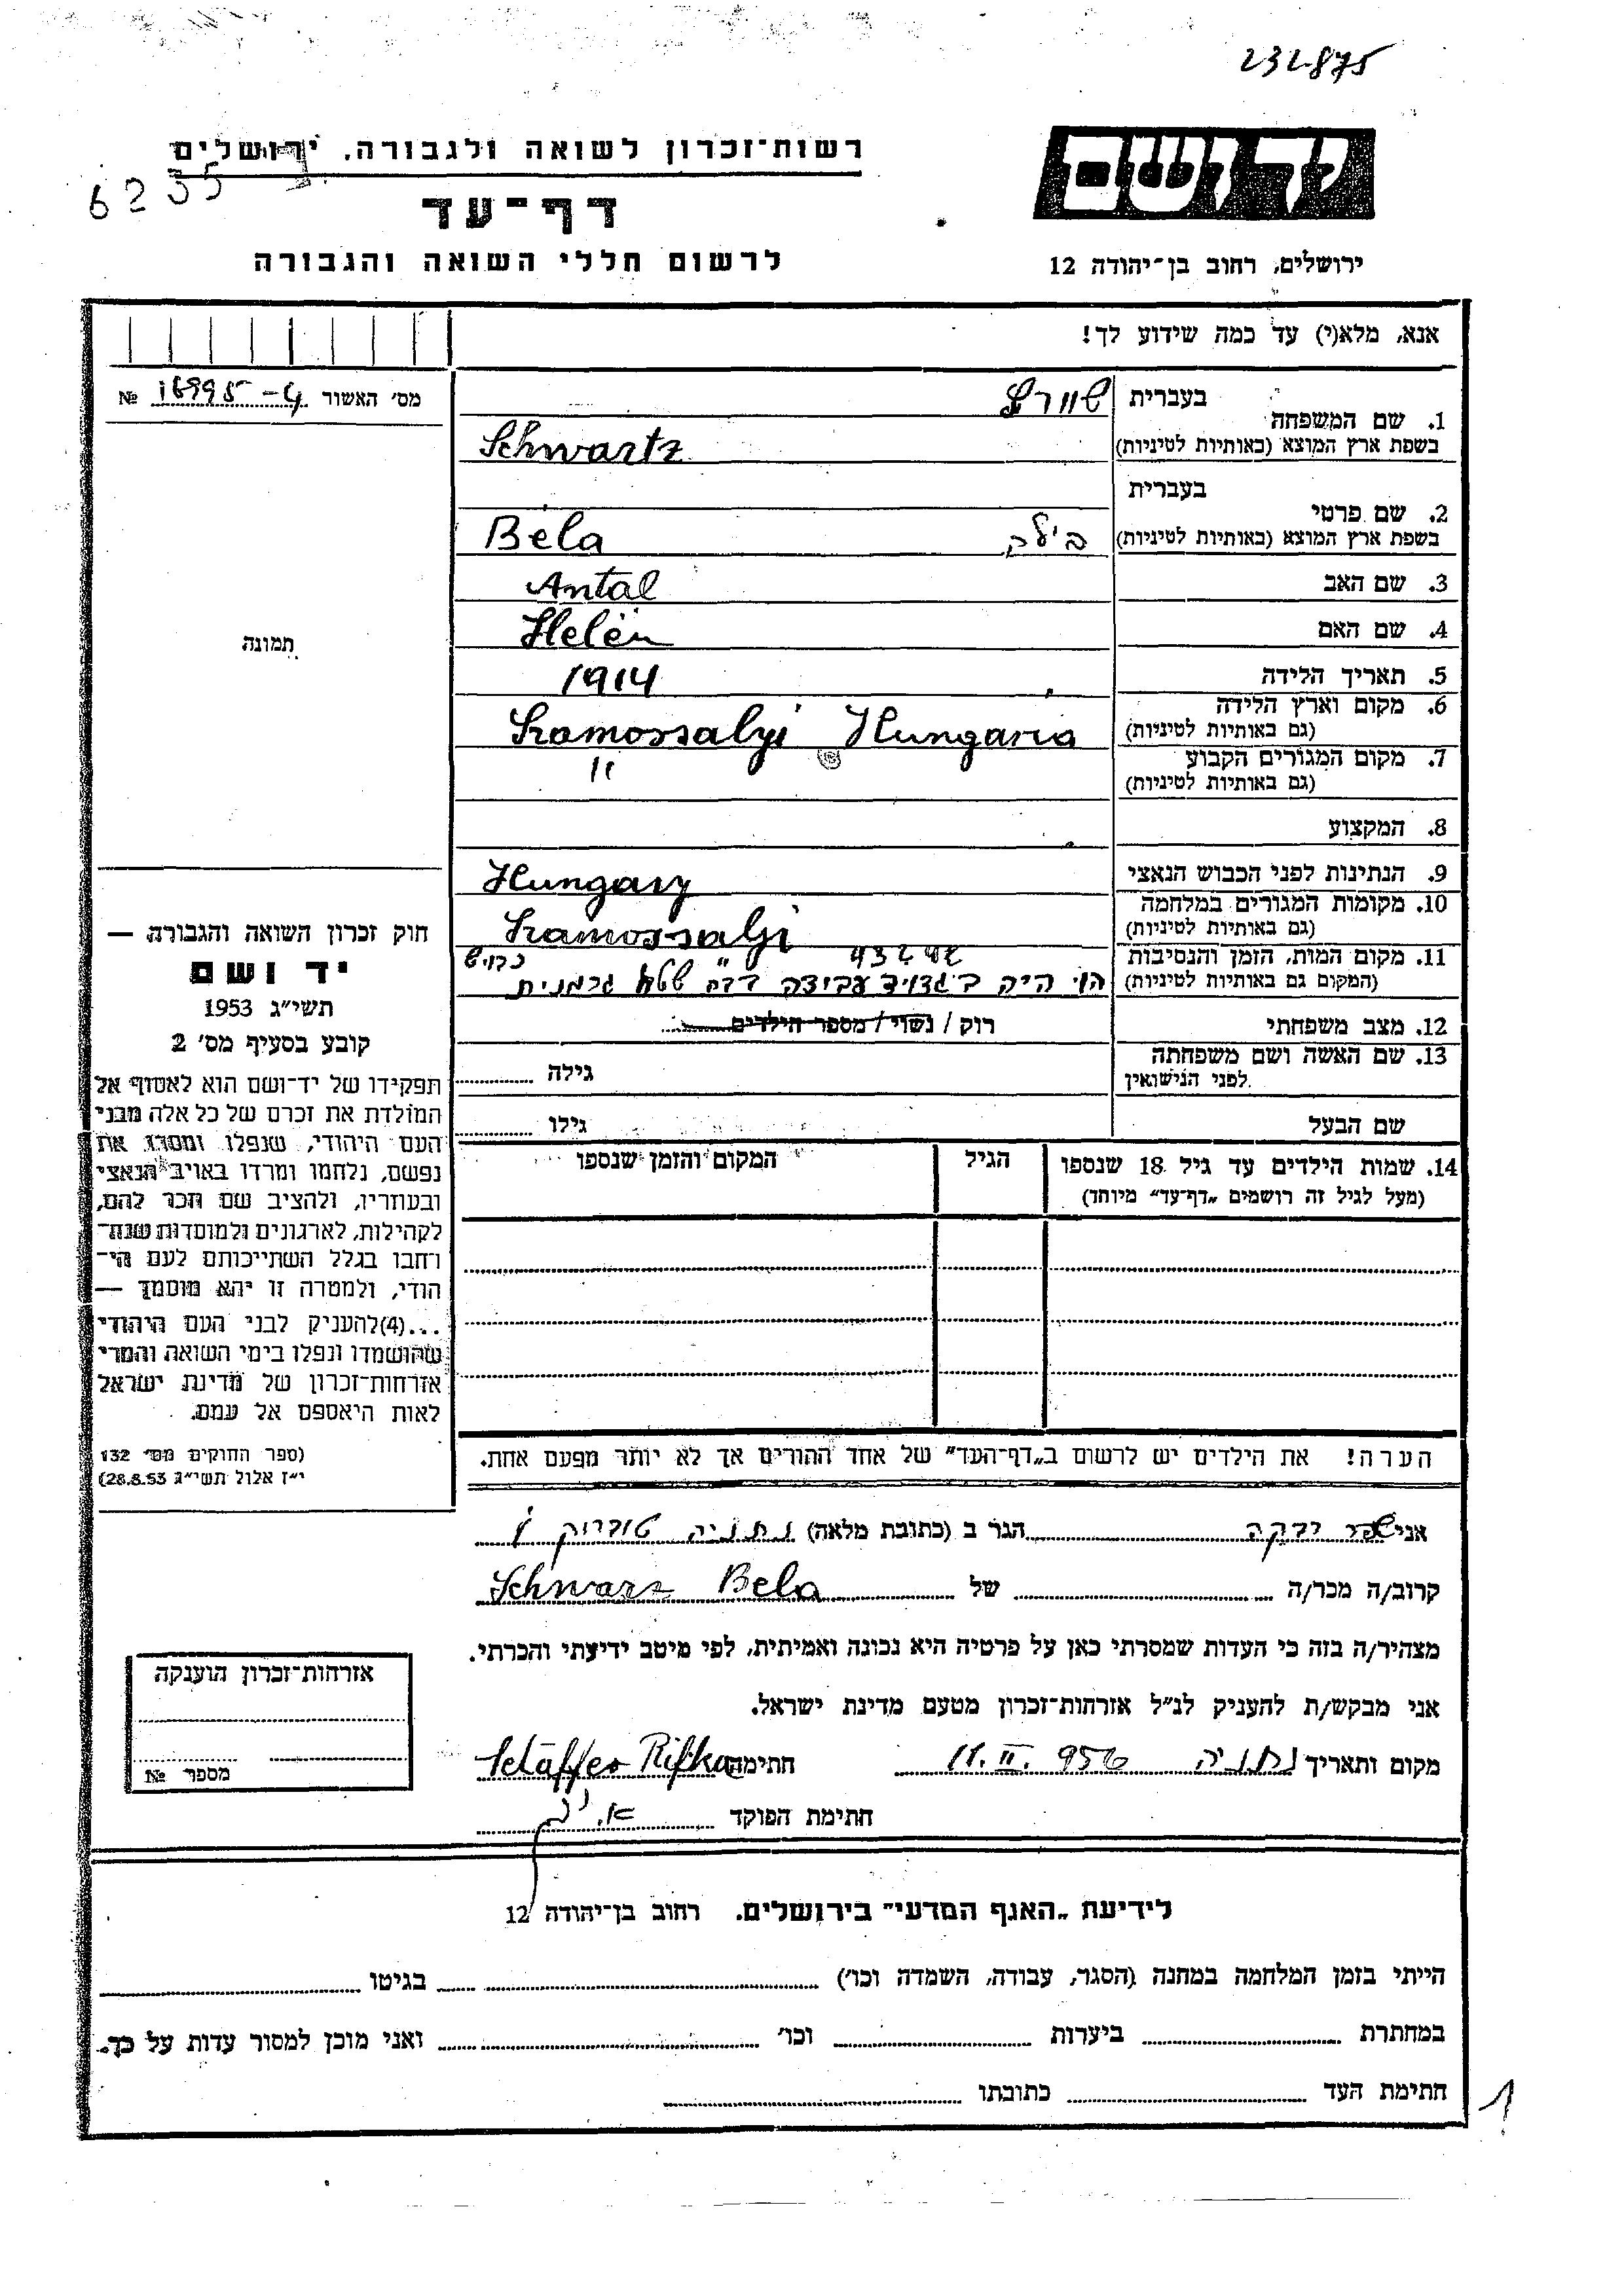 232875
רשות־זכרון לשואה ולגבורה. ירושלים
6235
ידושם
דף־עד
לרשום חללי השואה והגבורה
ירושלים, רחוב בן־יהודה 12
אנא, מלא(י) עד כמה שידוע לך!
מס׳ האשור 16995-4 №
1. שם המשפחה
בעברית שוורץ
בשפת ארץ המוצא (באותיות לטיניות) Schwartz
2. שם פרטי
בעברית
בשפת ארץ המוצא (באותיות לטיניות) Béla
3. שם האב Antal
4. שם האם Helén
5. תאריך הלידה 1914
6. מקום וארץ הלידה
(גם באותיות לטיניות) Szamossalyi Hungaria
7. מקום המגורים הקבוע "
(גם באותיות לטיניות)
8. המקצוע
9. הנתינות לפני הכבוש הנאצי Hungary
10. מקומות המגורים במלחמה
(גם באותיות לטיניות) Szamossalyi
11. מקום המות, הזמן והנסיבות
(המקום גם באותיות לטיניות) היה
12. מצב משפחתי רוק / נשוי / מספר הילדים
13. שם האשה ושם משפחתה
לפני הנישואין
גילה
שם הבעל
גילו
14. שמות הילדים עד גיל 18 שנספו
(מעל לגיל זה רושמים „דף־עד״ מיוחד)
הגיל
המקום והזמן שנספו
הערה! את הילדים יש לרשום ב„דף־העד״ של אחד ההורים אך לא יותר מפעם אחת.
תמונה
חוק זכרון השואה והגבורה —
יד ושם
תשי״ג 1953
קובע בסעיף מס׳ 2
תפקידו של יד־ושם הוא לאסוף אל
המולדת את זכרם של כל אלה מבני
העם היהודי, שנפלו ומסרו את
נפשם, נלחמו ומרדו באויב הנאצי
ובעוזריו, ולהציב שם וזכר להם,
לקהילות, לארגונים ולמוסדות שנח־
רחבו בגלל השתייכותם לעם הי־
הודי, ולמטרה זו יהא מוסמך —
...(4)להעניק לבני העם היהודי
שהושמדו ונפלו בימי השואה והמרי
אזרחות־זכרון של מדינת ישראל
לאות היאספם אל עמם.
(ספר החוקים מס׳ 132
י״ז אלול תשי״ג 28.8.53)
אני הגר ב (כתובת מלאה) נתניה
קרוב/ה מכר/ה של Schwarz Bela
מצהיר/ה בזה כי העדות שמסרתי כאן על פרטיה היא נכונה ואמיתית, לפי מיטב ידיעתי והכרתי.
אני מבקש/ת להעניק לנ״ל אזרחות־זכרון מטעם מדינת ישראל.
מקום ותאריך נתניה 11. II. 956 חתימה Schäffer Rifka
חתימת הפוקד
אזרחות־זכרון הוענקה
מספר №
לידיעת „האגף המדעי״ בירושלים. רחוב בן־יהודה 12
הייתי בזמן המלחמה במחנה (הסגר, עבודה, השמדה וכו׳) בגיטו
במחתרת ביערות וכו׳ ואני מוכן למסור עדות על כך.
חתימת העד כתובתו
1